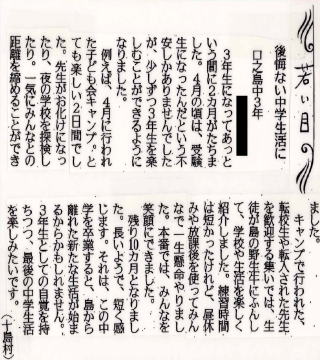 若い目
後悔ない中学生活に
口之島中3年
３年生になってあっと
いう間に２カ月がたちま
した。４月の頃は、受験
生になったんだという不
安しかありませんでした
が、少しずつ３年生を楽
しむことができるように
なりました。
例えば、４月に行われ
た子ども会キャンプ。と
ても楽しい２日間でし
た。先生がお化けになっ
たり、夜の学校を探検し
たり。一気にみんなとの
距離を締めることができ
ました。
キャンプで行われた、
転校生や転入された先生
を歓迎する集いでは、生
徒が島の野生牛にふんし
て、学校や生活を楽しく
紹介しました。練習時間
は短かったけれど、昼休
みや放課後を使ってみん
なで一生懸命やりまし
た。本番では、みんなを
笑顔にできました。
残り10カ月となりまし
た。長いようで、短く感
じます。それは、この中
学を卒業すると、島から
離れた新たな生活が始ま
るからかもしれません。
３年生としての自覚を持
ちつつ、最後の中学生活
を楽しみたいです。（十島村）